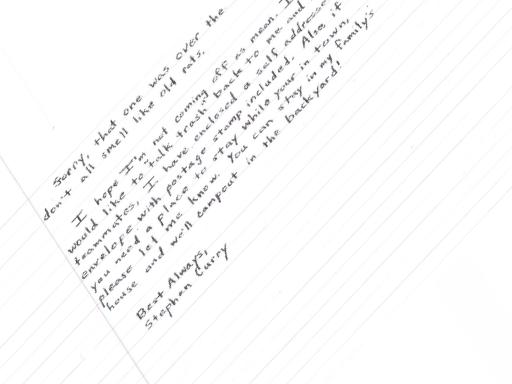 Sorry, that one was over the
don't all smell like old rats.
I hope I'm not coming off as mean. I
would like to "talk trash" back to me and
teammates, I have enclosed a self addresse
envelope with postage stamp included. Also, if
you need a place to stay while your in town,
please let me know. You can stay in my family's
house and we'll campout in the backyard!
Best Always,
Stephan Curry